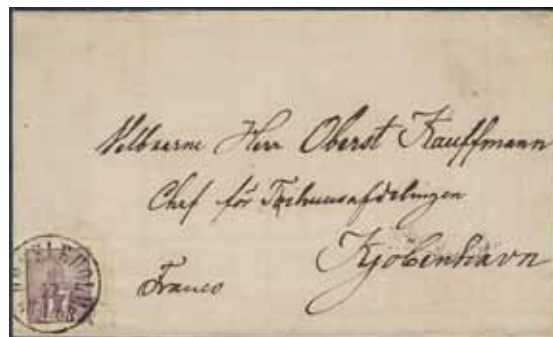 Velbaarne Herr Oberst Kauffmann
Chef för
Kjöbenhavn
Franco